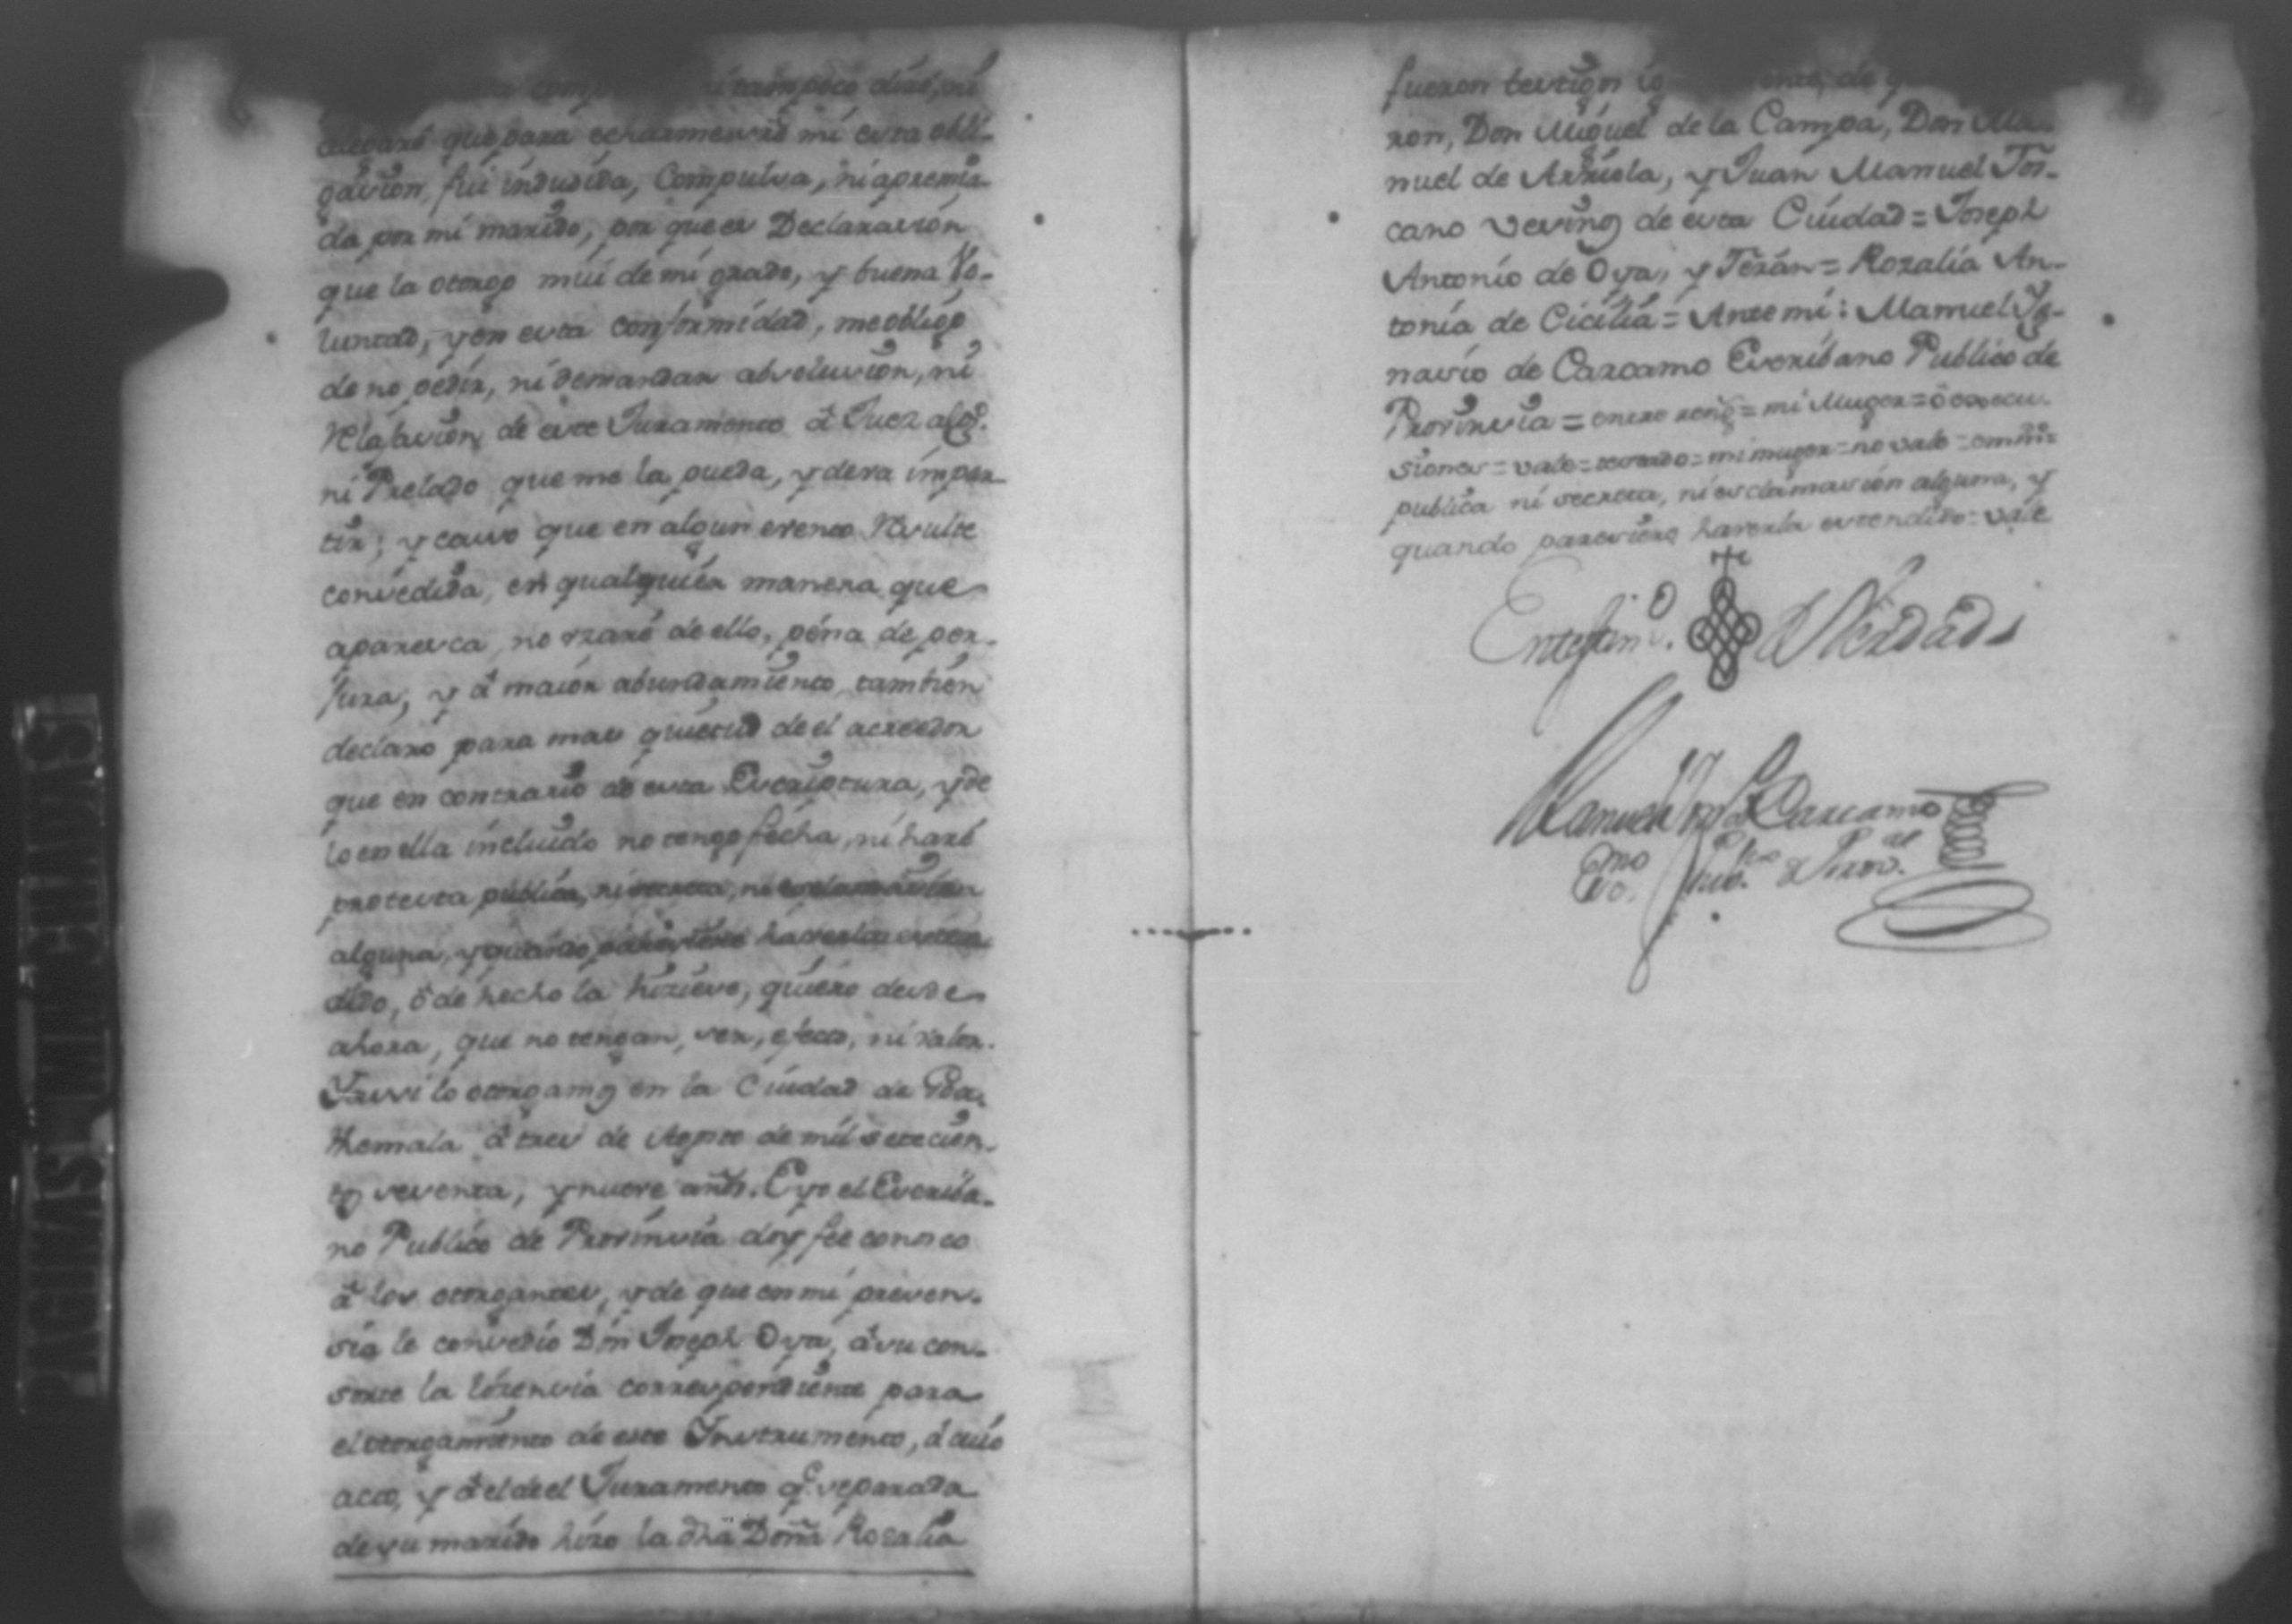 ni tampoco diré, ni
alegaré que para echarme sre mi esta obli-
gasion, fui indusida, Compulsa, ni apremia-
da por mi marido, por que es Declarasion
que la otorgo mui de mi grado, y buena Vo-
luntad, y en esta conformidad, me obligo
de no pedir, ni demandar absolusion, ni
Relajasion de este Juramento â Juez algo.
ni Prelado que me la pueda, y deva impar-
tir; y caso que en algun evento Resulte
consedida, en qualquier manera que
aparesca, no vzaré de ello, pena de per-
jura, y â maior abundamiento, tambien
declaro para mas quietud de el acreedor
que en contrario de esta Escriptura, y de
lo en ella incluido no tengo fecha, ni haré
protesta publica, ni secreta, ni esclamasion
alguna, y quando paresiere haverla esten-
dido, ô de hecho la hiziese, quiero desde
ahora, que no tengan, ser, efecto, ni valor.
Y assi lo otorgamos en la Ciudad de Goa-
themala â tres de Agosto de mil setecien-
tos sesenta, y nueve años. E yo el Escriba-
no Publico de Provinsia doy fee conosco
â los otorgantes, y de que en mi presen-
sia le consedio Dn Joseph Oya, â su con-
sorte la lizensia correspondiente para
el otorgamiento de este Instrumento, â cuio
acto, y â el de el Juramento qe. separada
de su marido hizo la dha Doña Rozalia
fueron testigos lo de
ron, Don Miguel de la Campa, Don Ma-
nuel de Arriola, y Juan Manuel Tos-
cano vesinos de esta Ciudad = Joseph
Antonio de Oya, y Terán = Rozalia An-
tonia de Cicilia = Ante mi: Manuel Yg-
nasio de Carcamo Escribano Publico de
Provinsia = entre rengs = mi Muger = ô
siones = vale = testado = mi muger = no vale = enmdo =
publica ni secreta, ni esclamasion alguna, y
quando paresiere haverla estendido = vale
En testimo. de Verdad
Manuel Ygno de Carcamo
Esno. Pubco. de Proval.
PAGINAS MANCHADAS